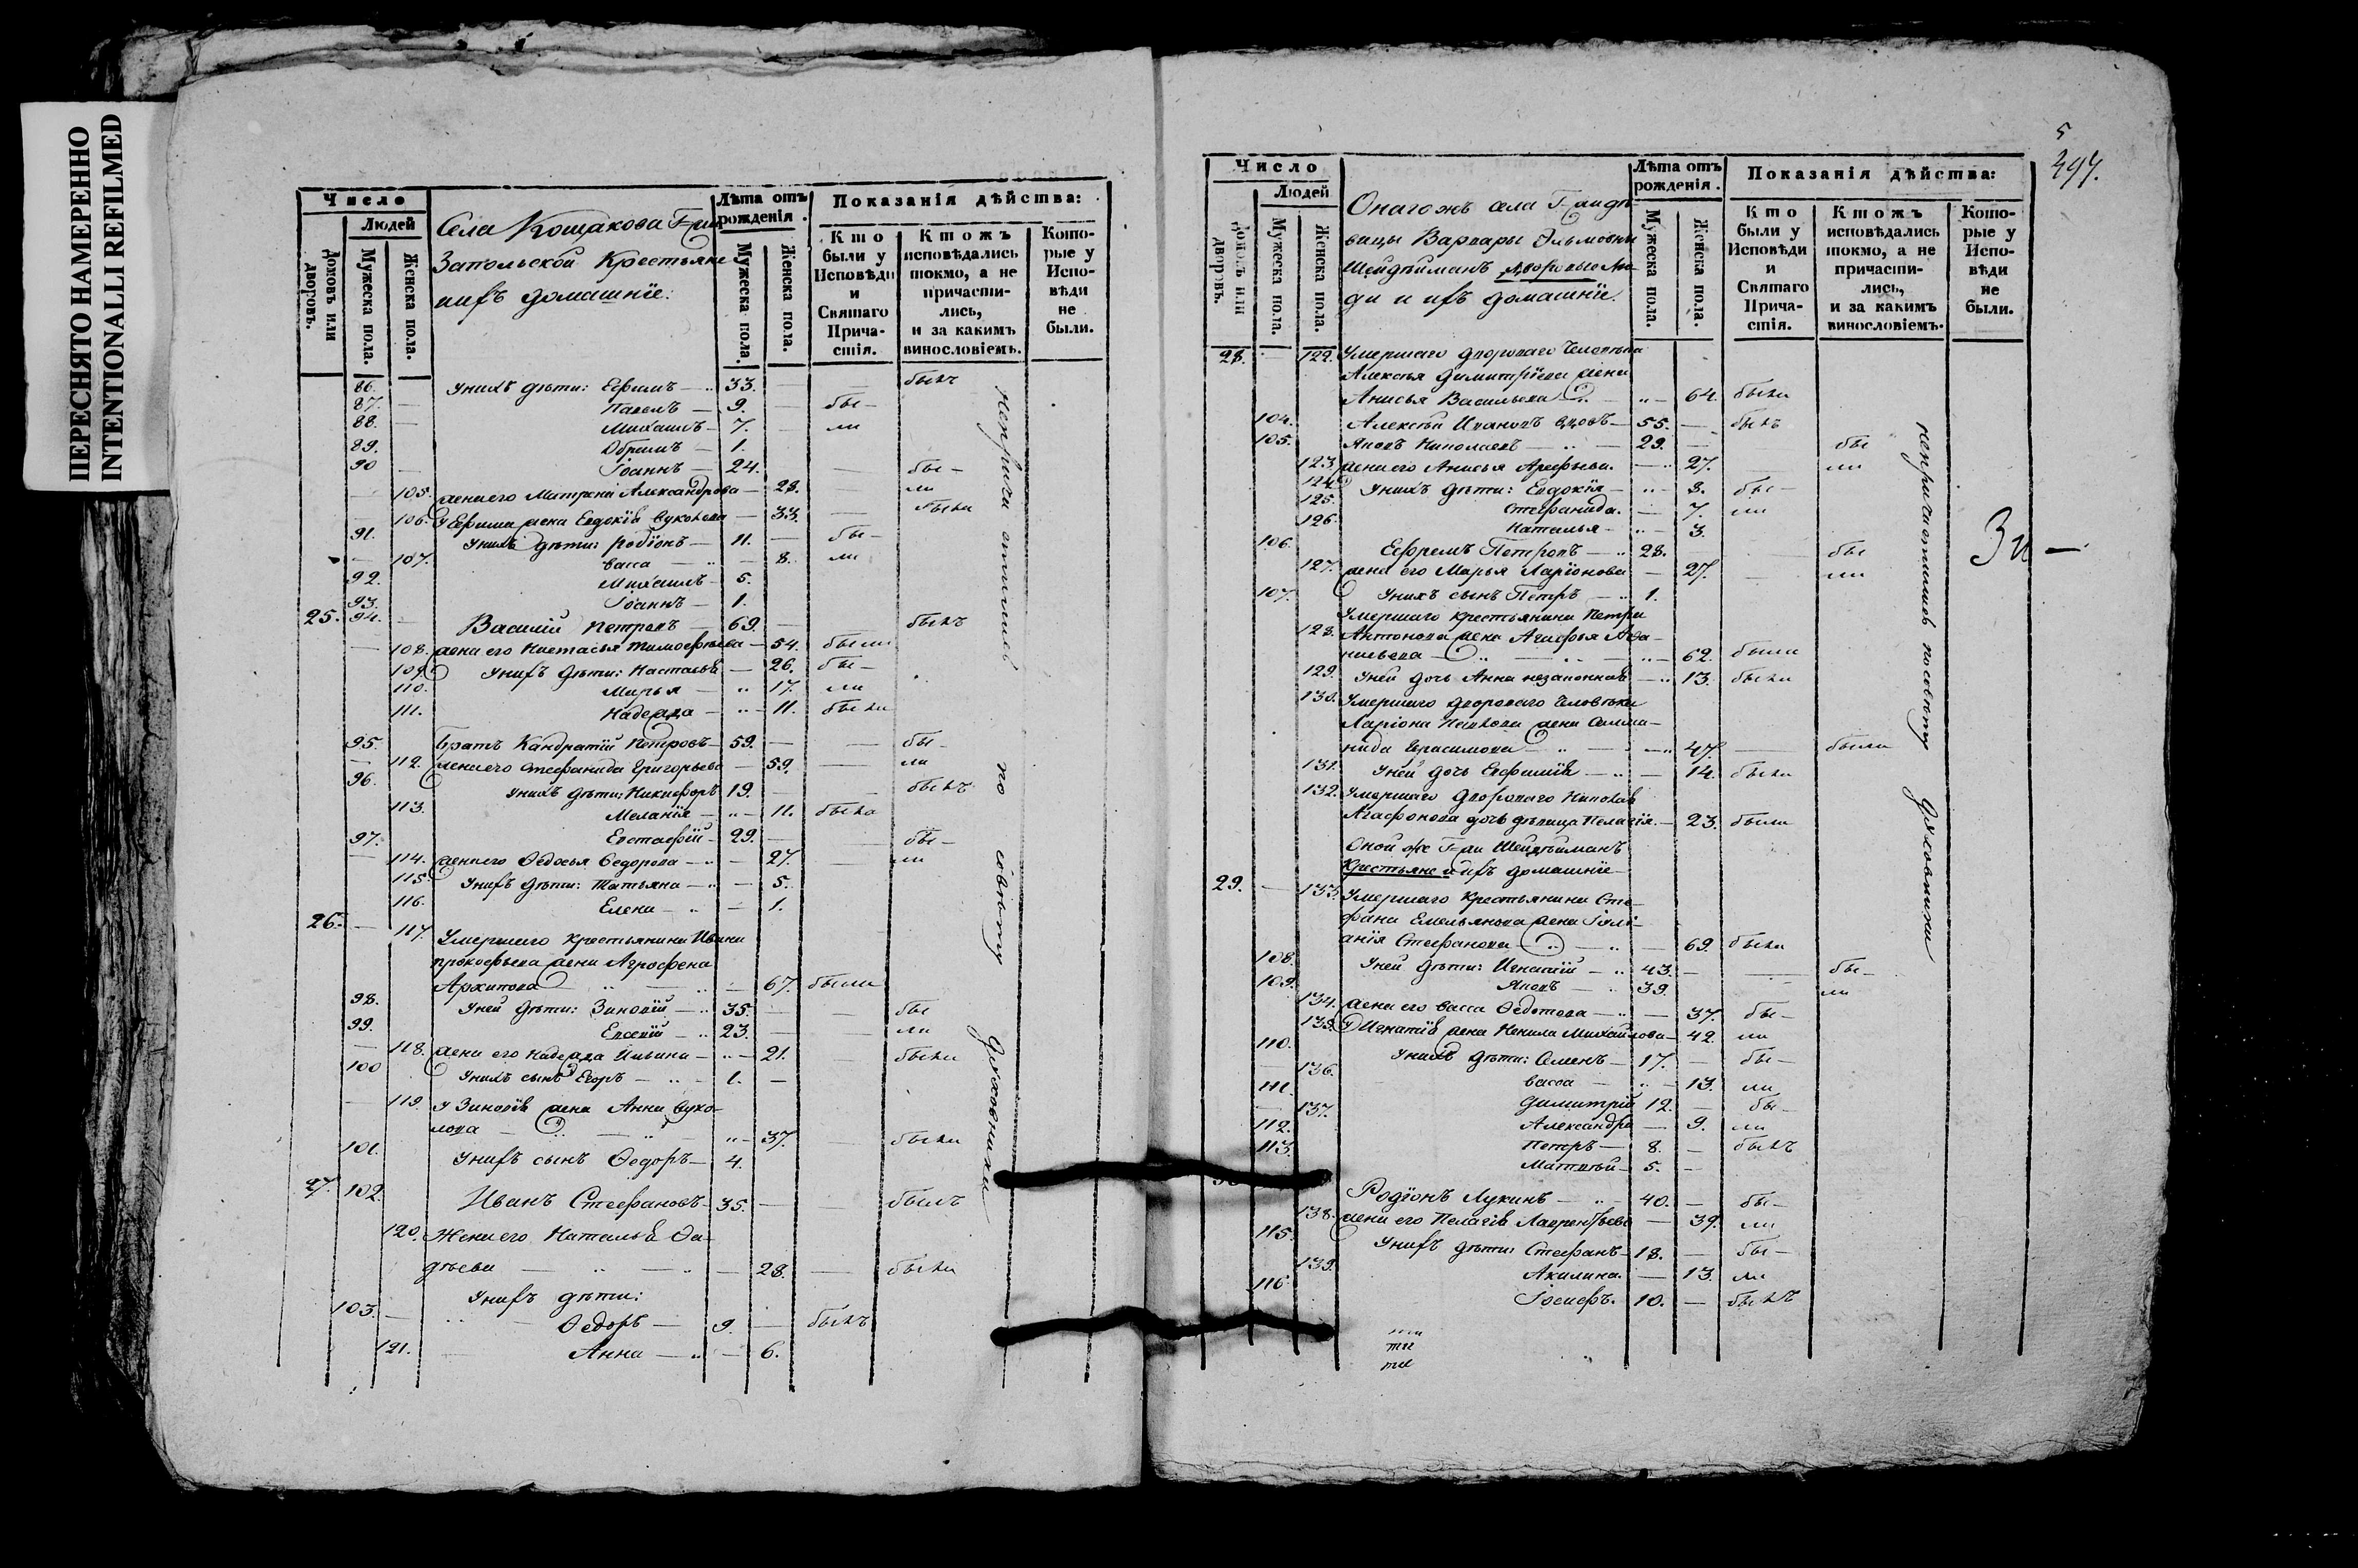 ПЕРЕСНЯТО НАМЕРЕННО
INTENTIONALLI REFILMED
Число
Людей
Домовъ или дворовъ.
Мужеска пола.
Женска пола.
Села Кощакова Г-жи
Запольской Крестьяне
ихъ домашніе:
Лѣта отъ рожденія.
Мужеска пола.
Женска пола.
Показанія дѣйства:
Кто были у Исповѣди и Святаго Причастія.
Ктожъ исповѣдались токмо, а не причастились, и за какимъ винословіемъ.
Которые у Исповѣди не были.
86. У нихъ дѣти: Ефимъ 33. былъ
87. Павелъ 9. бы-
88. Михаилъ 7. ли
89. 1.
90 Іоаннъ 24. бы-
105. жена его Матрена Александрова 28. ли
106. У Ефима жена Евдокія 33. были
91. У нихъ дѣти: Родіонъ 11. бы-
107. Васса 8. ли
92. Михаилъ 5.
93. Іоаннъ 1.
25. 94. Василій Петровъ 69. былъ
108. жена его Настасья Тимофѣева 54. были
109. У нихъ дѣти: Настасья 26. бы-
110. Марья 17. ли
111. Надежда 11. была
95. Братъ Кандратій Петровъ 59. бы-
112. жена его Стефанида Григорьева 59. ли
96. У нихъ дѣти: Никифоръ 19. былъ
113. Меланія 11. была
97. Евстафій 29. бы-
114. жена его Ѳедосья Ѳедорова 27. ли
115. У нихъ дѣти: Татьяна 5.
116. Елена 1.
26. 117. Умершаго крестьянина Ивана
Прокофьева жена Агрофена
Архипова 67. были
98. У ней дѣти: Зиновій 35. бы
99. Евсевій 23. ли
118. жена его Надежда Ильина 21. была
100 У нихъ сынъ Егоръ 1.
119. У Зиновія жена Анна Вуко-
лова 37. была
101. У нихъ сынъ Ѳедоръ 4.
27. 102. Иванъ Стефановъ 35. былъ
120. Жена его Наталья Ѳа-
дѣева 28. была
У нихъ дѣти:
103. Ѳедоръ 9. былъ
121. Анна 6.
непричастились по совѣту духовника
5
497.
Число
Людей
Домовъ или дворовъ.
Мужеска пола.
Женска пола.
Онагожъ села Г-жи дѣ-
вицы Варвары
Шейдѣиманъ дворовые лю-
ди и ихъ домашніе.
Лѣта отъ рожденія.
Мужеска пола.
Женска пола.
Показанія дѣйства:
Кто были у Исповѣди и Святаго Причастія.
Ктожъ исповѣдались токмо, а не причастились, и за какимъ винословіемъ.
Которые у Исповѣди не были.
28. 122. Умершаго двороваго человѣка
Алексѣя Димитріева жена
Анисья Васильева 64. была
104. Алексѣй Ивановъ вдовъ 55. былъ
105. Яковъ Николаевъ 29. бы
123. жена его Анисья Арефьева. 27. ли
124. У нихъ дѣти: Евдокія 8. бы-
125. Стефанида. 7. ли
126. Наталья 3.
106. Ефремъ Петровъ 28. бы
127. жена его Марья Ларіонова 27. ли
107. У нихъ сынъ Петръ 1.
Умершаго крестьянина Петра
128. Антонова жена Агафья
62. была
129. У ней дочь Анна незаконная 13. была
130. Умершаго двороваго человѣка
Ларіона жена
Герасимова 47. была
131. У ней дочь Евфимія 14. была
132. Умершаго двороваго Николая
Агафонова дочь дѣвица Пелагія. 23. была
Оной же Г-жи Шейдѣиманъ
Крестьяне и ихъ домашніе
29. 133. Умершаго крестьянина Сте-
фана Емельянова жена Іулі-
анія Стефанова 69. была
108. У ней дѣти: Игнатій 43. бы-
109. Яковъ 39. ли
134. жена его Васса Ѳедотова 37. бы-
135. У Игнатія жена Ненила Михайлова 42. ли
110. У нихъ дѣти: Семенъ 17. бы-
136. Васса 13. ли
111. Димитрій 12. бы-
137. Александра 9. ли
112. Петръ 8. былъ
113. Матвѣй 5.
Родіонъ Лукинъ 40. бы-
138. жена его Пелагія Лаврентьева 39. ли
115. У нихъ дѣти: Стефанъ 18. бы-
139. Акилина. 13. ли
116 Іосифъ. 10. былъ
непричастились по совѣту духовника